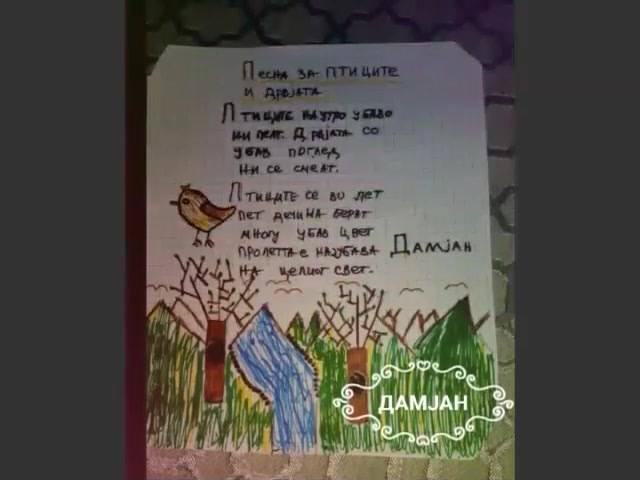 Песна за птиците
и дрвјата
Птиците наутро убаво
ни пеат. Дрвјата со
убав поглед
ни се смеат.
Птиците се во лет
пет деца берат
многу убав цвет
пролетта е најубава
на целиот свет.
Дамјан
ДАМЈАН